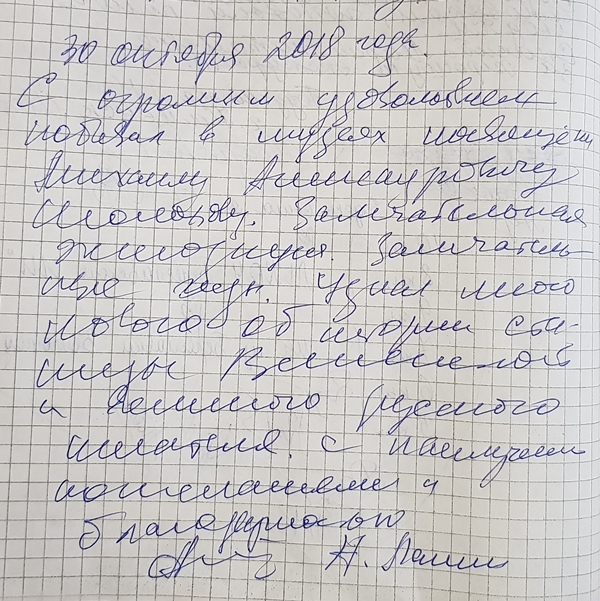 30 октября 2018 года.
С огромным удовольствием
побывал в музеях посвящен
Михаилу Александровичу
Шолохову. Замечательная
экспозиция. Замечатель-
ные гиды. Узнал много
нового об истории ста-
ницы Вешенской
и великого русского
писателя. С наилучшими
пожеланиями и
благодарностью
А.